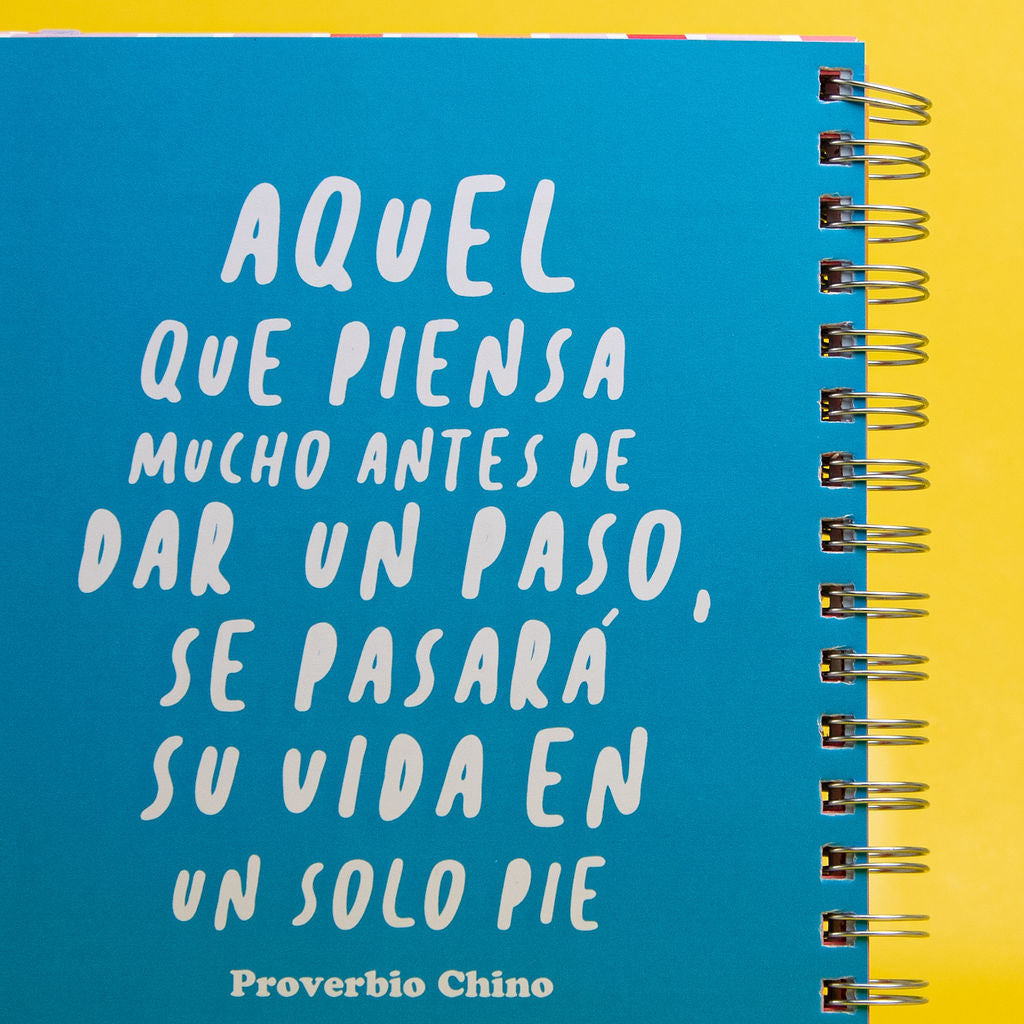 AQUEL
QUE PIENSA
MUCHO ANTES DE
DAR UN PASO,
SE PASARÁ
SU VIDA EN
UN SOLO PIE
Proverbio Chino